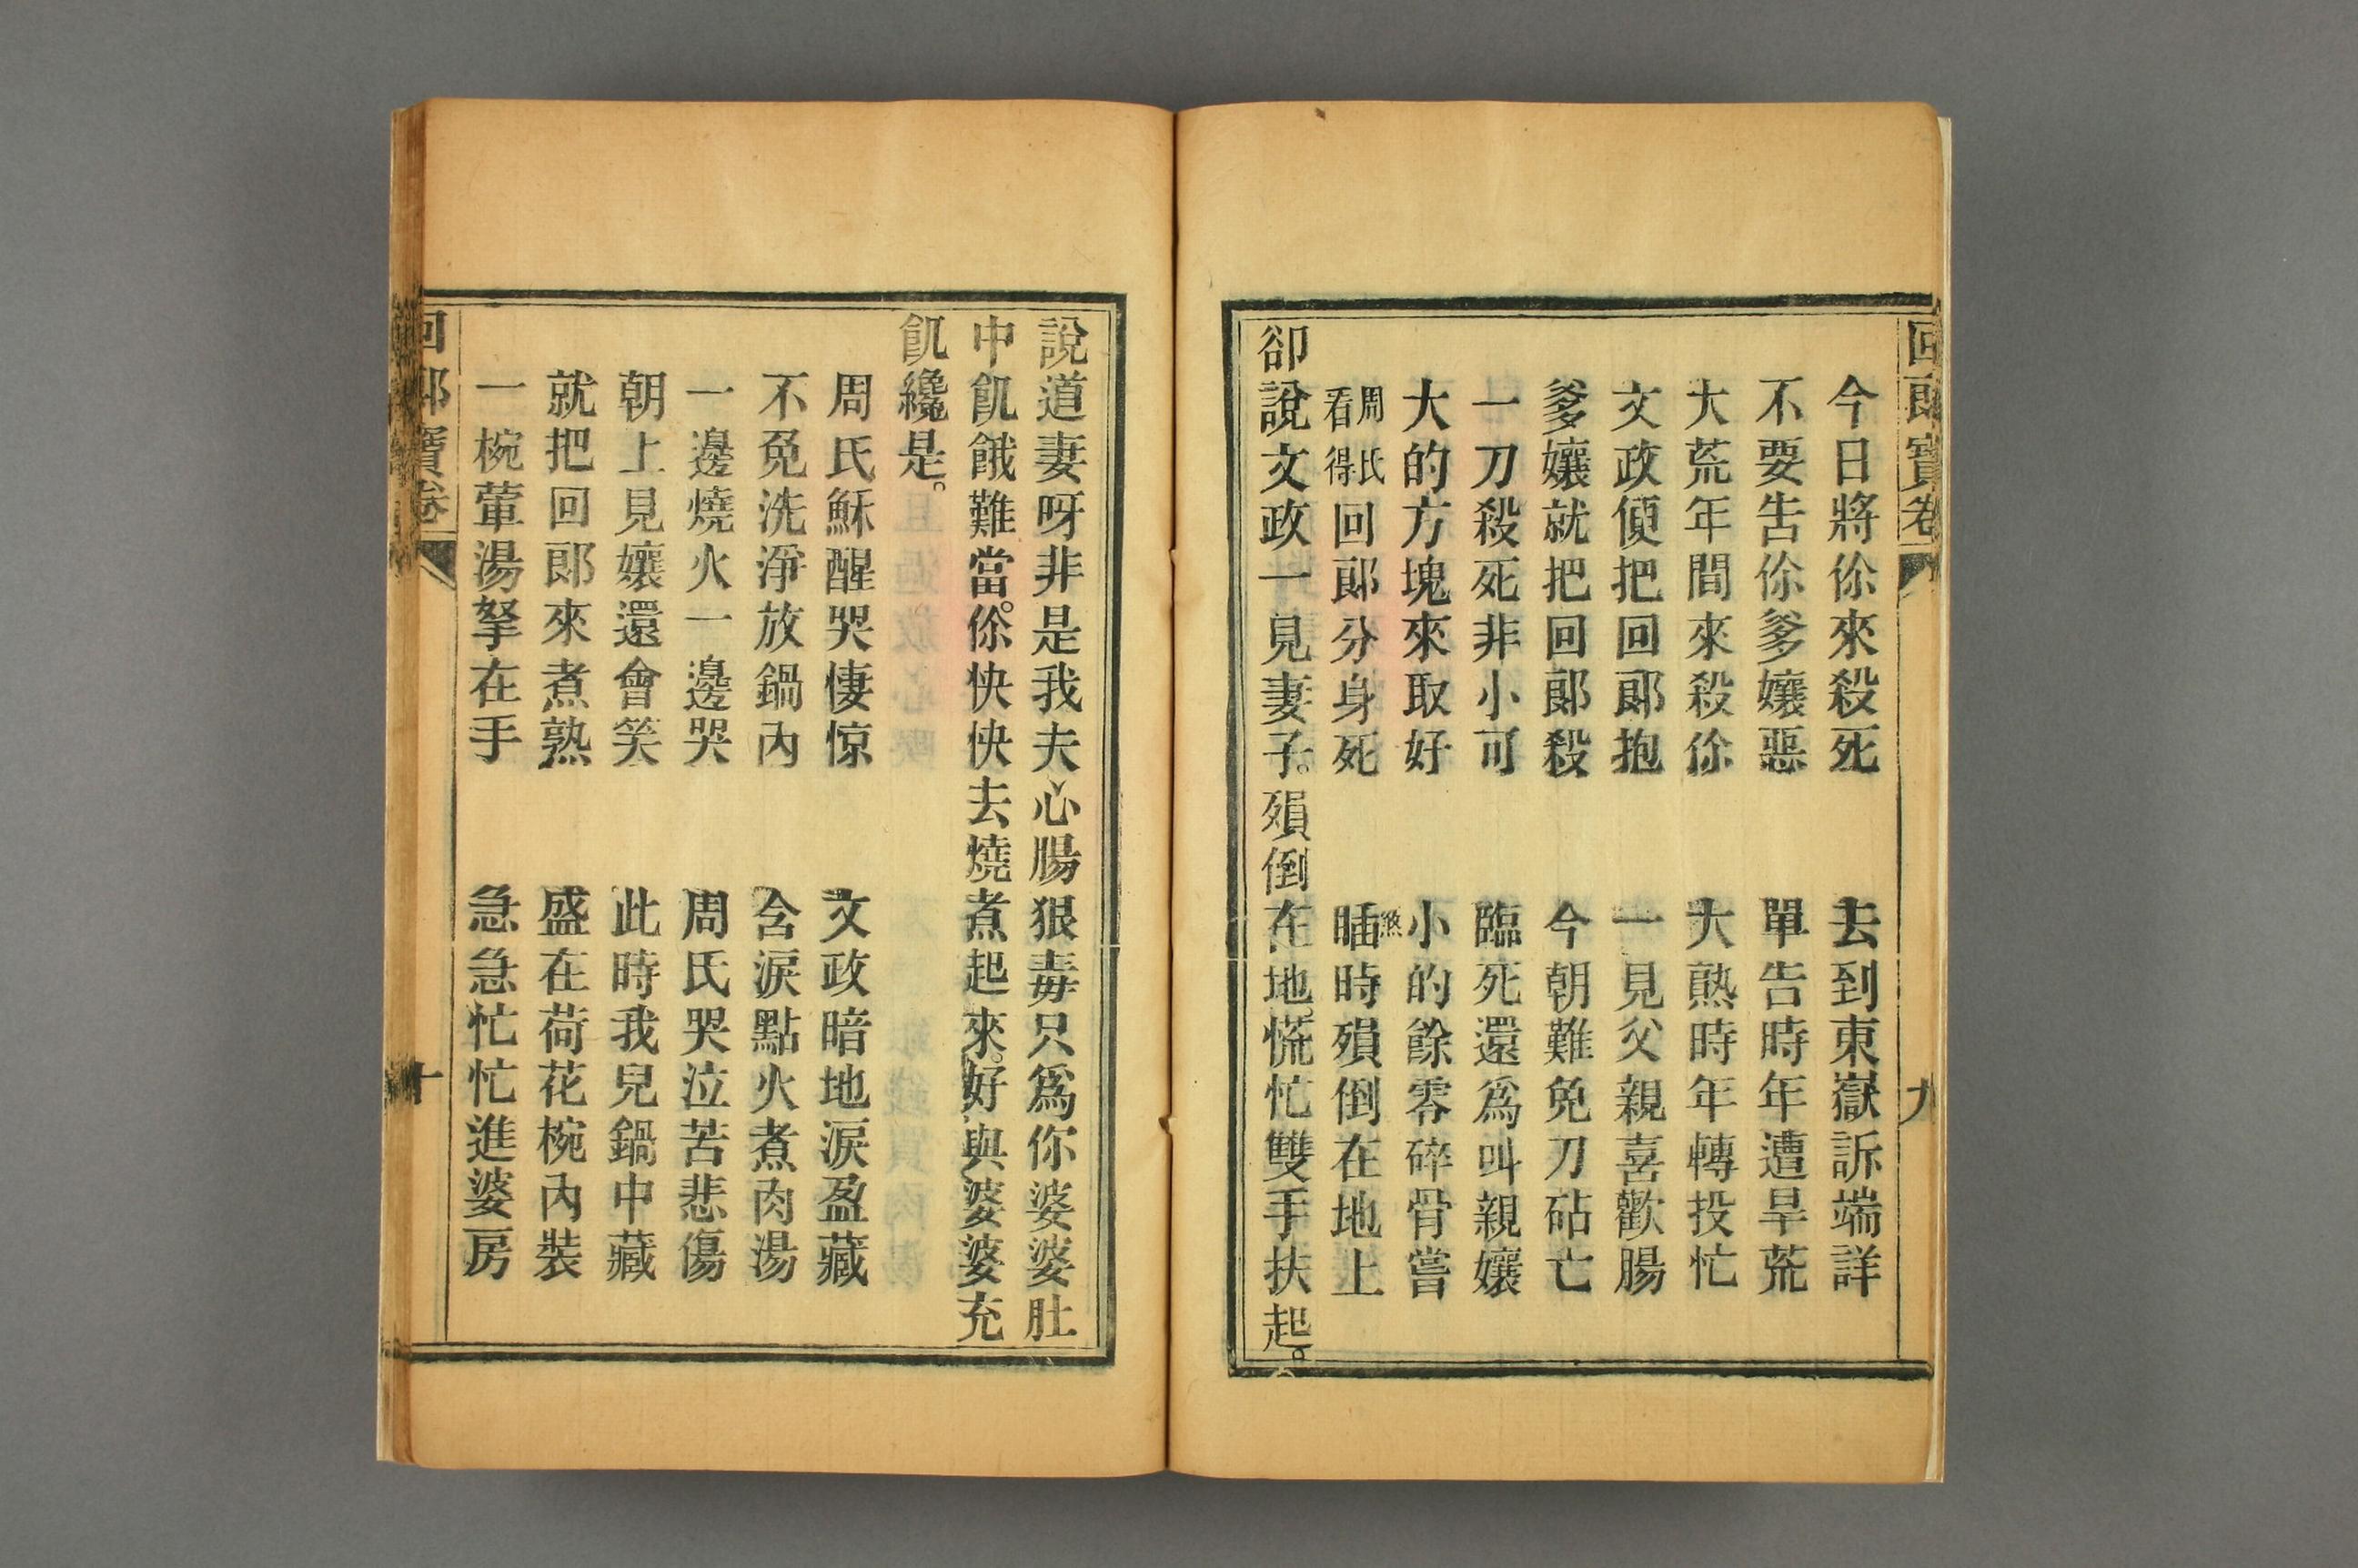 回郎寶卷 九
今日將你來殺死 去到東嶽訴端詳
不要告你爹孃惡 單告時年遭旱荒
大荒年間來殺你 大熟時年轉投忙
文政便把回郎抱 一見父親喜歡腸
爹孃就把回郎殺 今朝難免刀砧亡
一刀殺死非小可 臨死還爲叫親孃
大的方塊來取好 小的餘零碎骨嘗
周氏看得回郎分身死 煞時殞倒在地上
卻說文政一見妻子。殞倒在地。慌忙雙手扶起。
說道妻呀非是我夫心腸狠毒只爲你婆婆肚
中飢餓難當。你快快去燒煮起來。好與婆婆充
飢纔是。
周氏穌醒哭悽惊 文政暗地淚盈藏
不免洗淨放鍋內 含淚點火煮肉湯
一邊燒火一邊哭 周氏哭泣苦悲傷
朝上見孃還會笑 此時我兒鍋中藏
就把回郎來煮熟 盛在荷花椀內裝
一椀葷湯拏在手 急急忙忙進婆房
回郎寶卷 十